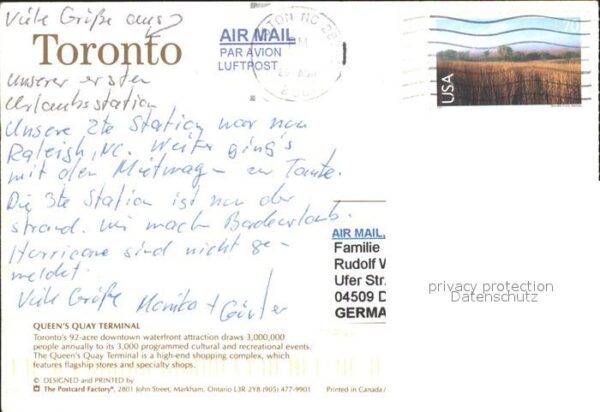 Viele Grüße aus
Toronto
unserer ersten
Urlaubsstation
Unsere 2te Station war nun
Raleigh, NC. Weiter ging's
mit dem Mietwagen zur Tante.
Die 3te Station ist nun der
Strand. wir mach Badeurlaub.
Hurricane sind nicht ge-
meldet.
Viele Grüße Monika + Günter
AIR MAIL
PAR AVION
LUFTPOST
TON NC 28
PM
70
USA
AIR MAIL,
Familie
Rudolf W
Ufer Str.
04509 D
GERMA
privacy protection
Datenschutz
QUEEN'S QUAY TERMINAL
Toronto's 92-acre downtown waterfront attraction draws 3,000,000
people annually to its 3,000 programmed cultural and recreational events.
The Queen's Quay Terminal is a high-end shopping complex, which
features flagship stores and specialty shops.
© DESIGNED and PRINTED by
The Postcard Factory®, 2801 John Street, Markham, Ontario L3R 2Y8 (905) 477-9901 Printed in Canada